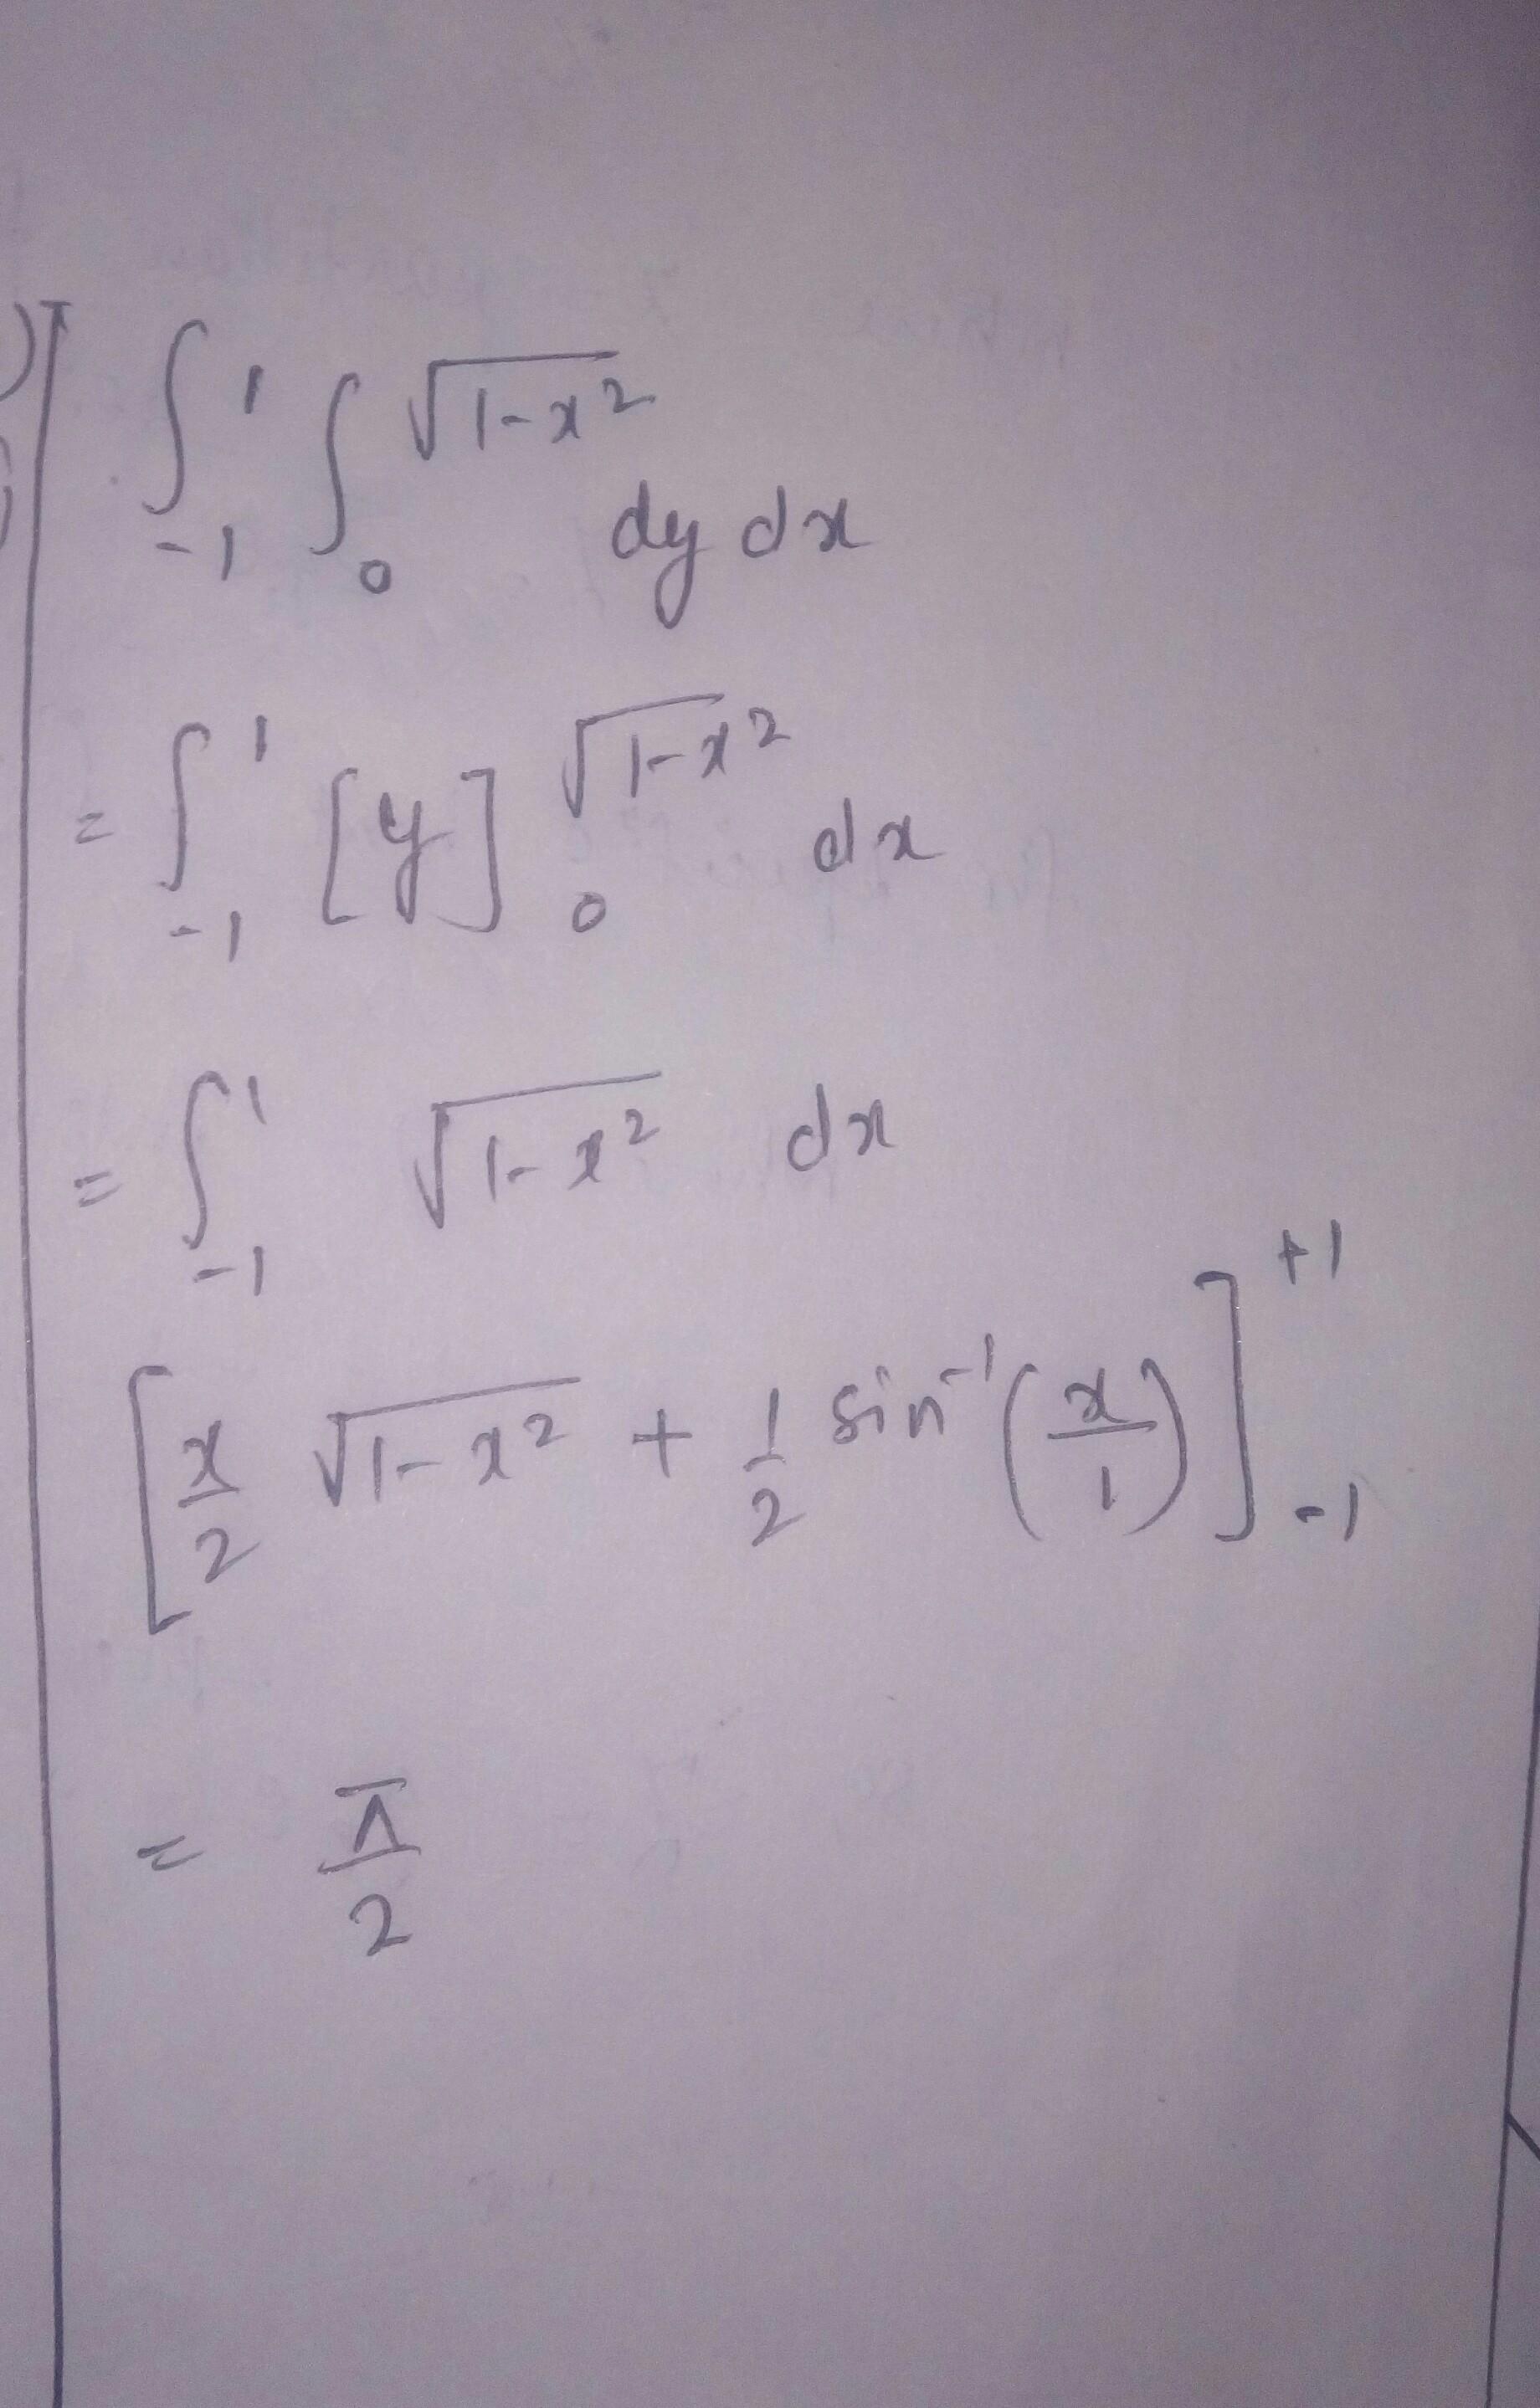 ∫_{-1}^{1} ∫_{0}^{√(1-x²)} dy dx
= ∫_{-1}^{1} [y]_{0}^{√(1-x²)} dx
= ∫_{-1}^{1} √(1-x²) dx
[x/2 √(1-x²) + 1/2 sin⁻¹(x/1)]_{-1}^{+1}
= π/2